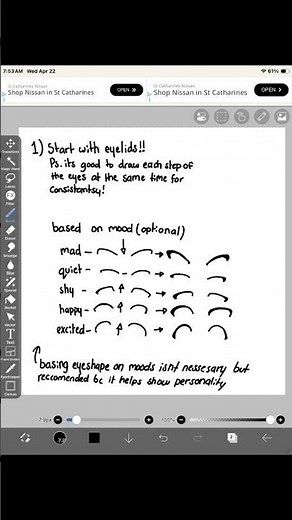 7:53 AM Wed Apr 22
61%
St Catharines Nissan
Shop Nissan in St Catharines
OPEN >>
St Catharines Nissan
Shop Nissan in St Catharines
OPEN >
1) Start with eyelids!!
Ps. its good to draw each step of
the eyes at the same time for
consistantsy!
based on mood (optional)
mad -
quiet -
shy -
happy -
excited -
basing eyeshape on moods isnt nessesary but
reccomended bc it helps show personality
Transform
Magic Wand
Lasso
Filter
Brush
Eraser
Smudge
Blur
Special
Bucket
Vector
Text
Frame Divider
Eyedropper
Canvas